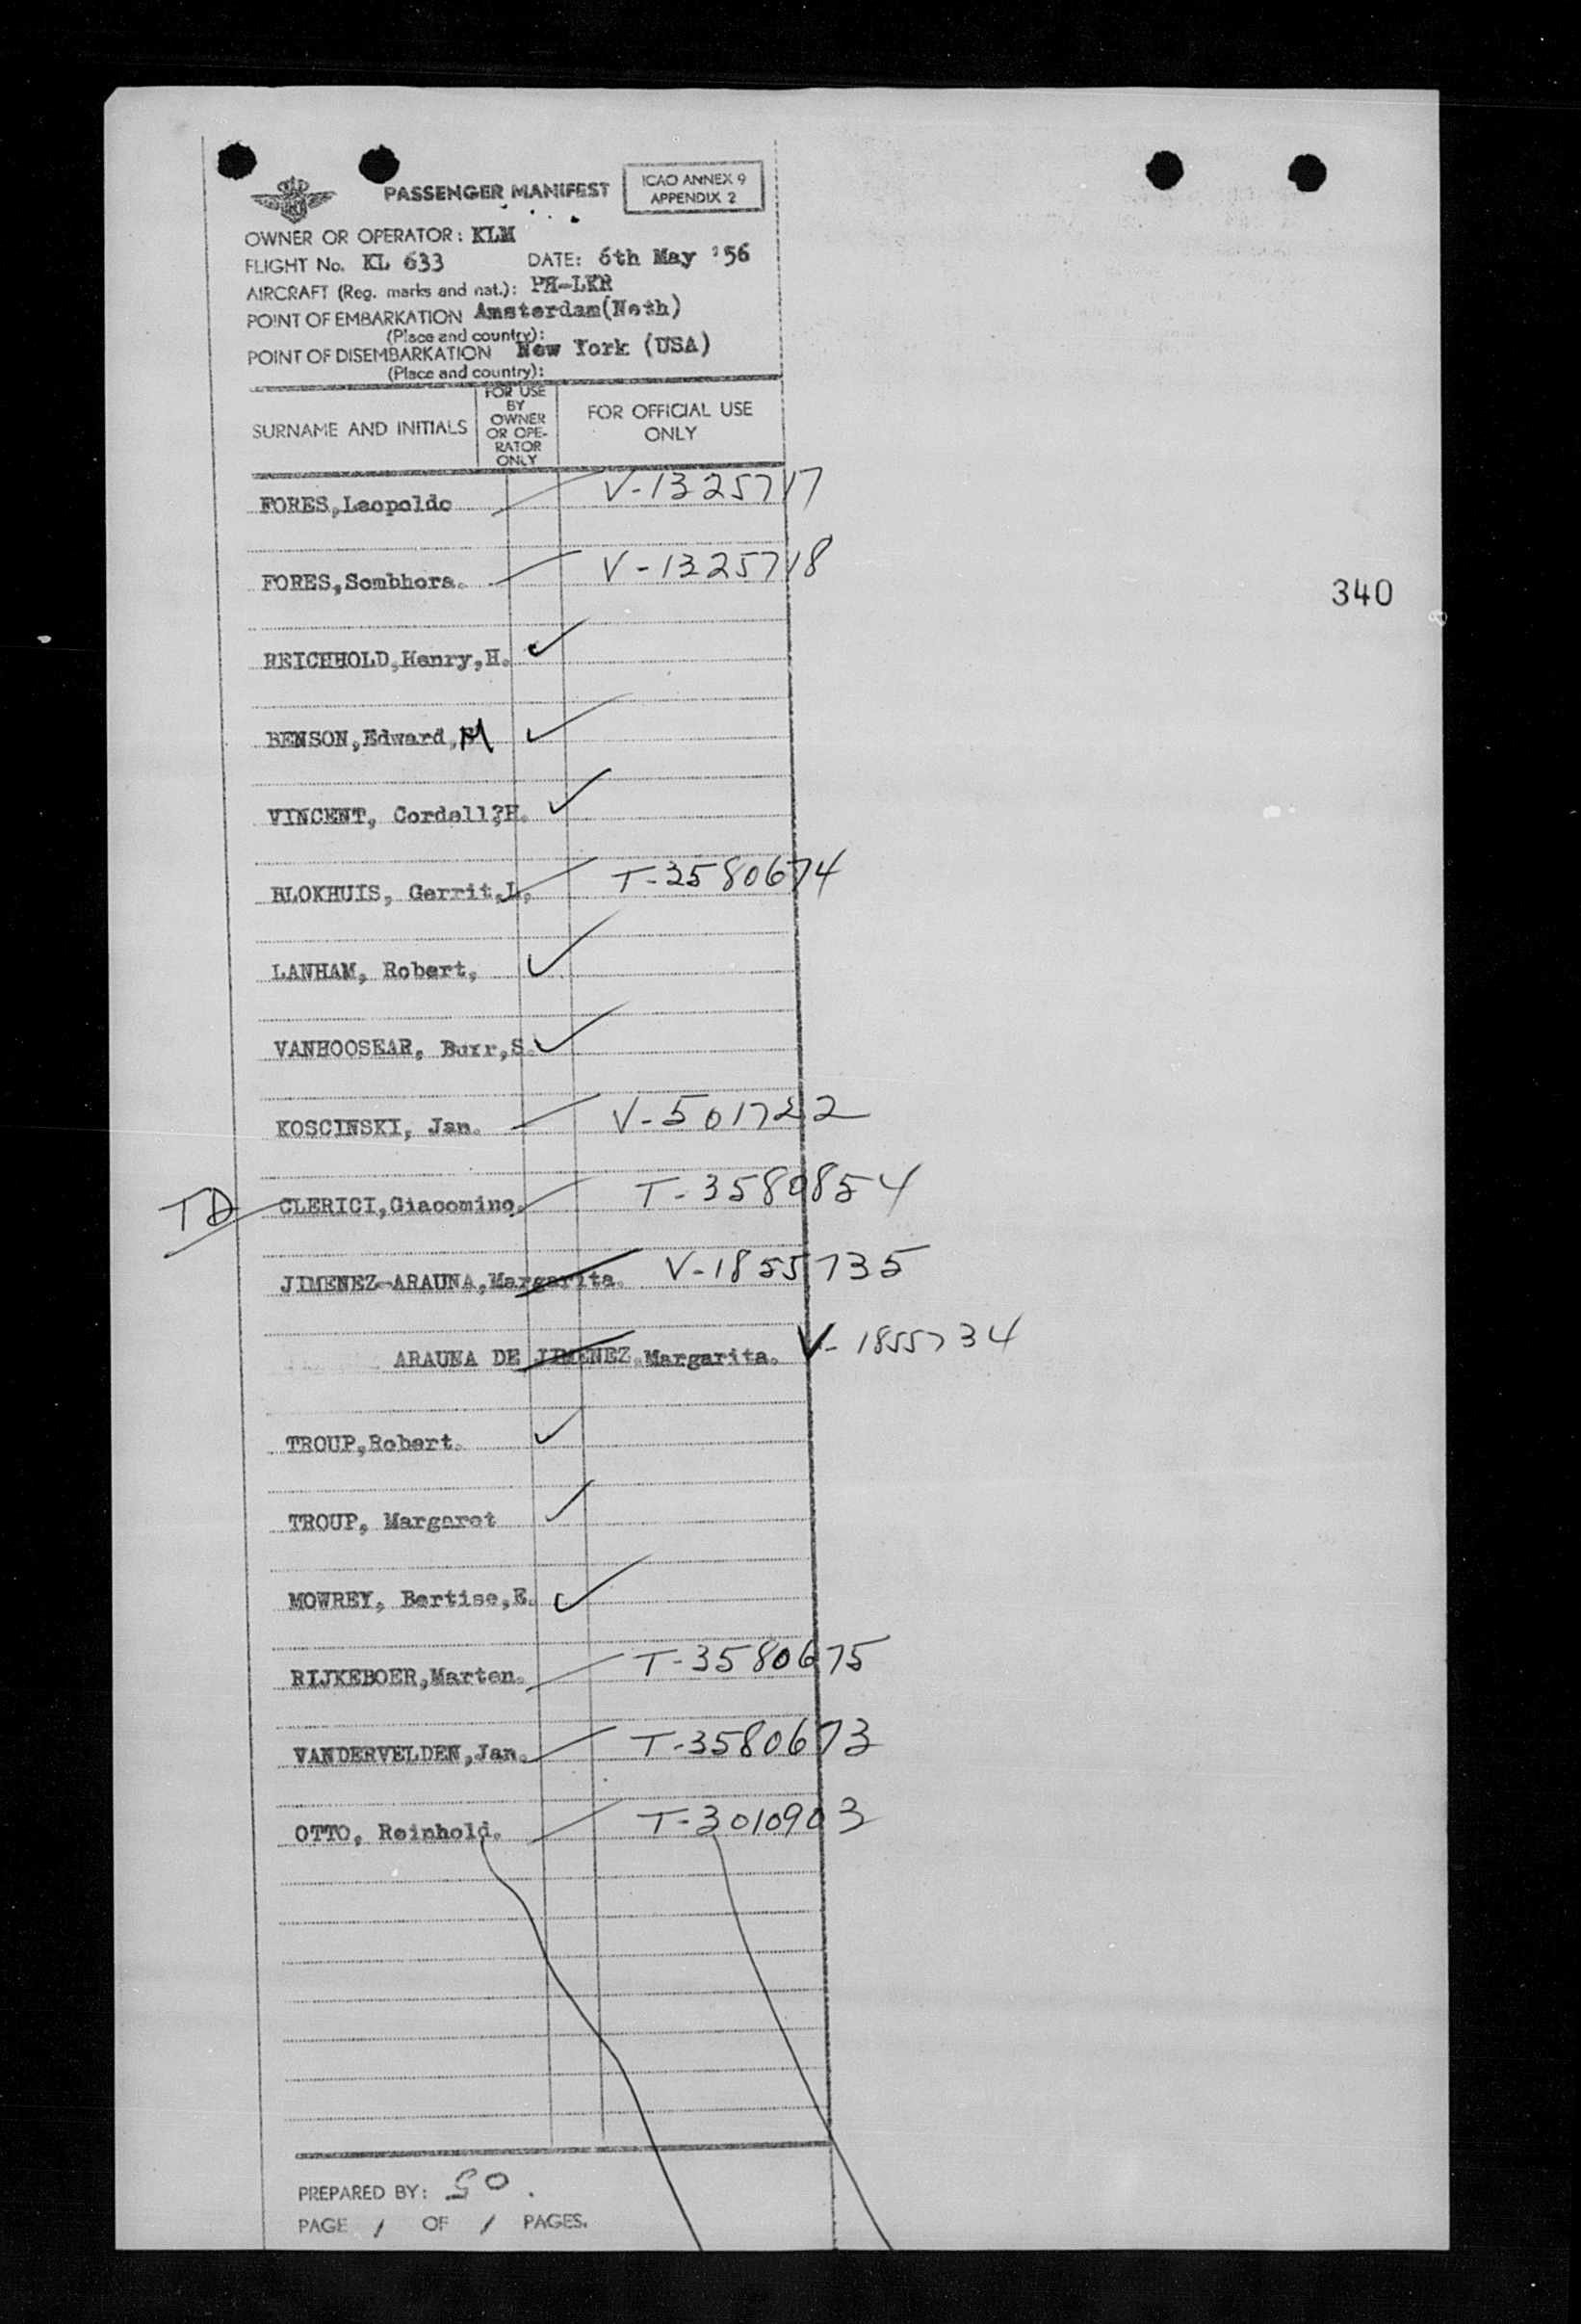 PASSENGER MANIFEST
ICAO ANNEX 9
APPENDIX 2
OWNER OR OPERATOR: KLM
FLIGHT No. KL 633 DATE: 6th May '56
AIRCRAFT (Reg. marks and nat.): PH-LKR
POINT OF EMBARKATION Amsterdam(Neth)
(Place and country):
POINT OF DISEMBARKATION New York (USA)
(Place and country):
SURNAME AND INITIALS
FOR USE
BY
OWNER
OR OPE-
RATOR
ONLY
FOR OFFICIAL USE
ONLY
FORES,Leopoldo V-1325717
FORES,Sombhora. V-1325718
340
REICHHOLD,Henry,H.
BENSON,Edward,M
VINCENT, Cordell?H.
BLOKHUIS, Gerrit,L, T-3580674
LANHAM, Robert,
VANHOOSEAR, Burr,S.
KOSCINSKI, Jan. V-501722
TD CLERICI,Giacomino. T-3580854
JIMENEZ-ARAUNA,Margarita. V-1855735
ARAUNA DE JIMENEZ,Margarita. V-1855734
TROUP,Robert.
TROUP, Margaret
MOWREY, Bertise,E.
RIJKEBOER,Marten. T-3580675
VANDERVELDEN,Jan. T-3580673
OTTO, Reinhold. T-3010903
PREPARED BY: SO.
PAGE 1 OF 1 PAGES.